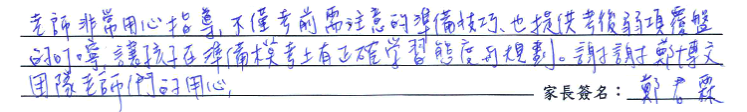 老師非常用心指導,不僅考前需注意的準備技巧、也提供考後弱項覆盤
的叮嚀,讓孩子在準備模考上有正確學習態度與規劃。謝謝鄭博文
團隊老師們的用心,
家長簽名:鄭君霖